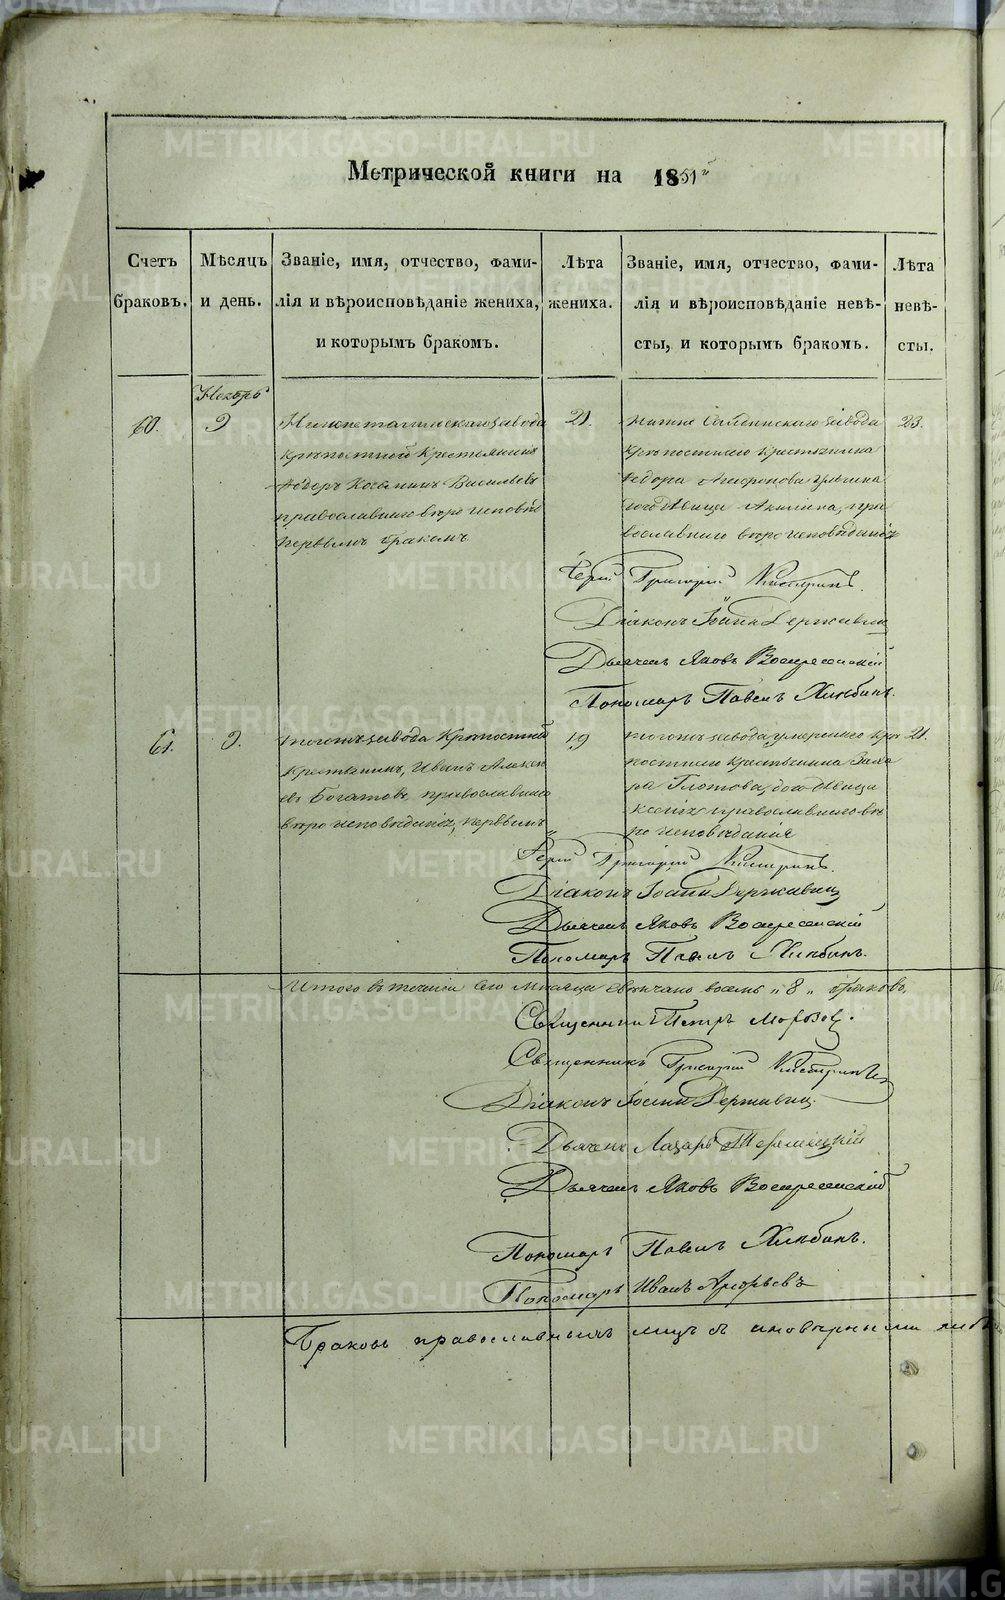 Метрической книги на 1851
Счетъ браковъ.
Мѣсяцъ и день.
Званіе, имя, отчество, фами-
лія и вѣроисповѣданіе жениха,
и которымъ бракомъ.
Лѣта
жениха.
Званіе, имя, отчество, фами-
лія и вѣроисповѣданіе невѣ-
сты, и которымъ бракомъ.
Лѣта
невѣ-
сты.
60.
9
завода
крѣпостной Крестьянинъ
Васильевъ
православнаго вѣроисповѣ
первымъ бракомъ
21.
завода
крѣпостнаго крестьянина
Федора
дѣвица Акилина, пра
вославнаго вѣроисповѣданія
23.
Іерей Григорій
Діаконъ Іоаннъ Державинъ
Дьячекъ Яковъ Воскресенскій
Пономарь Павелъ Хлыбинъ.
61.
9.
тогожъ завода Крѣпостный
крестьянинъ, Иванъ Алексѣ
евъ Богатовъ, православнаго
вѣроисповѣданія, первымъ
19
тогожъ завода умершаго крѣ
постнаго крестьянина Заха
ра Глотова, дочь дѣвица
Ксенія православнаго вѣ
ро исповѣданія
21.
Іерей Григорій
Діаконъ Іоаннъ Державинъ
Дьячекъ Яковъ Воскресенскій
Пономарь Павелъ Хлыбинъ.
Итого въ теченіи сего мѣсяца вѣнчано восемь „8„ браковъ.
Священникъ Петръ Морозовъ.
Священникъ Григорій
Діаконъ Іоаннъ Державинъ.
Дьячекъ Лазарь
Дьячекъ Яковъ Воскресенскій
Пономарь Павелъ Хлыбинъ.
Пономарь Иванъ
Браковъ православныхъ лицъ съ иновѣрными
METRIKI.GASO-URAL.RU